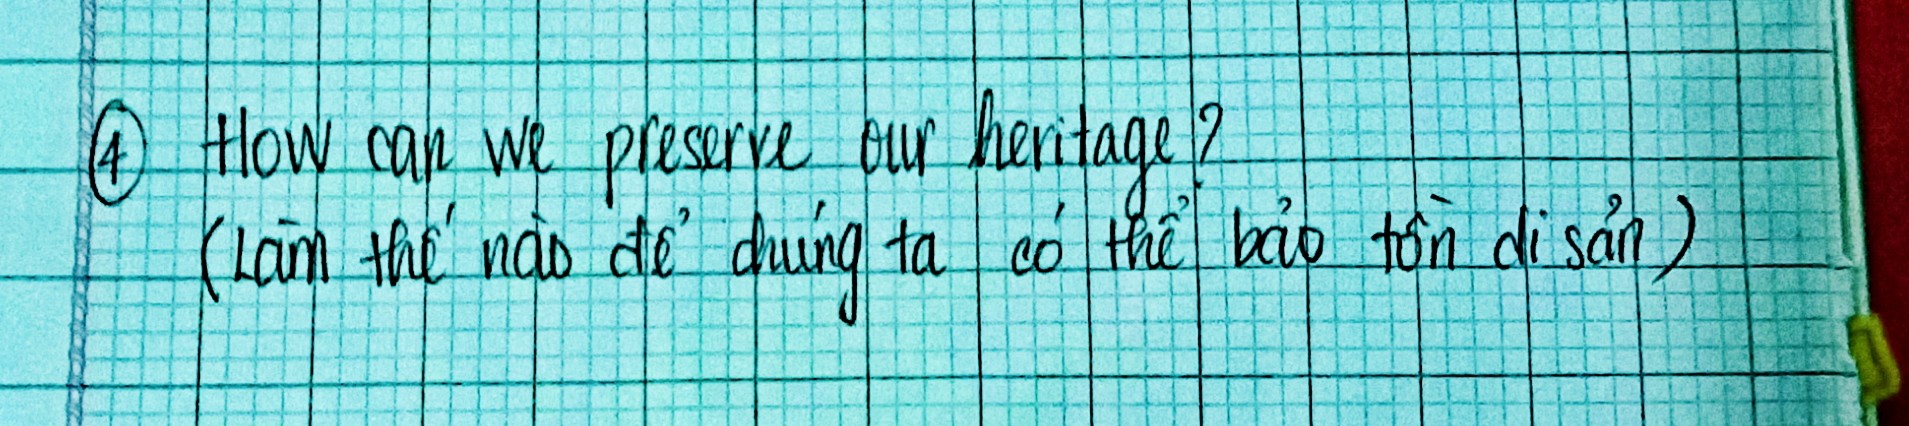 ④ How can we preserve our heritage?
(Làm thế nào để chúng ta có thể bảo tồn di sản)